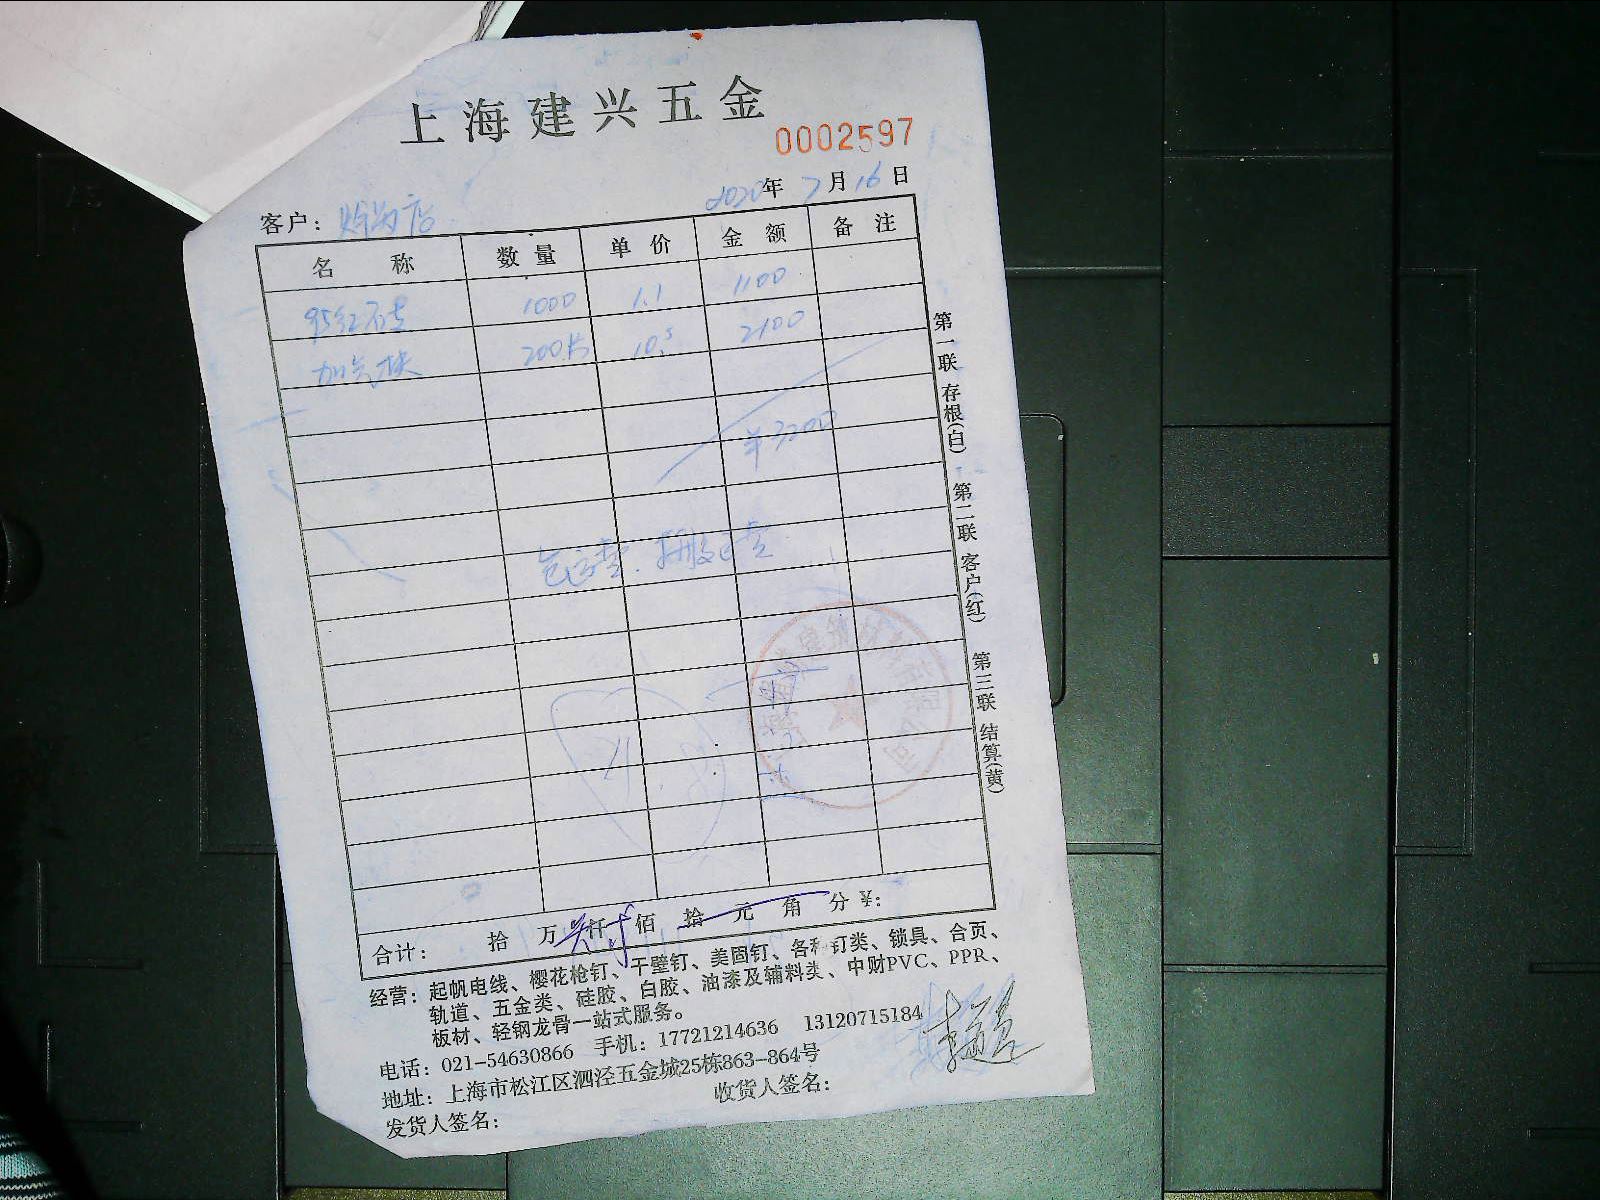 上海建兴五金
0002597
2020年7月16日
客户：
名称 数量 单价 金额 备注
95红石专 1000 1.1 1100
加气块 200片 10.5 2100
¥3200
包运费.
合计： 拾 万 仟 佰 拾 元 角 分 ¥：
经营：起帆电线、樱花枪钉、干壁钉、美固钉、各种钉类、锁具、合页、
轨道、五金类、硅胶、白胶、油漆及辅料类、中财PVC、PPR、
板材、轻钢龙骨一站式服务。
电话：021-54630866 手机：17721214636 13120715184
地址：上海市松江区泗泾五金城25栋863-864号
发货人签名： 收货人签名：
第一联 存根(白) 第二联 客户(红) 第三联 结算(黄)